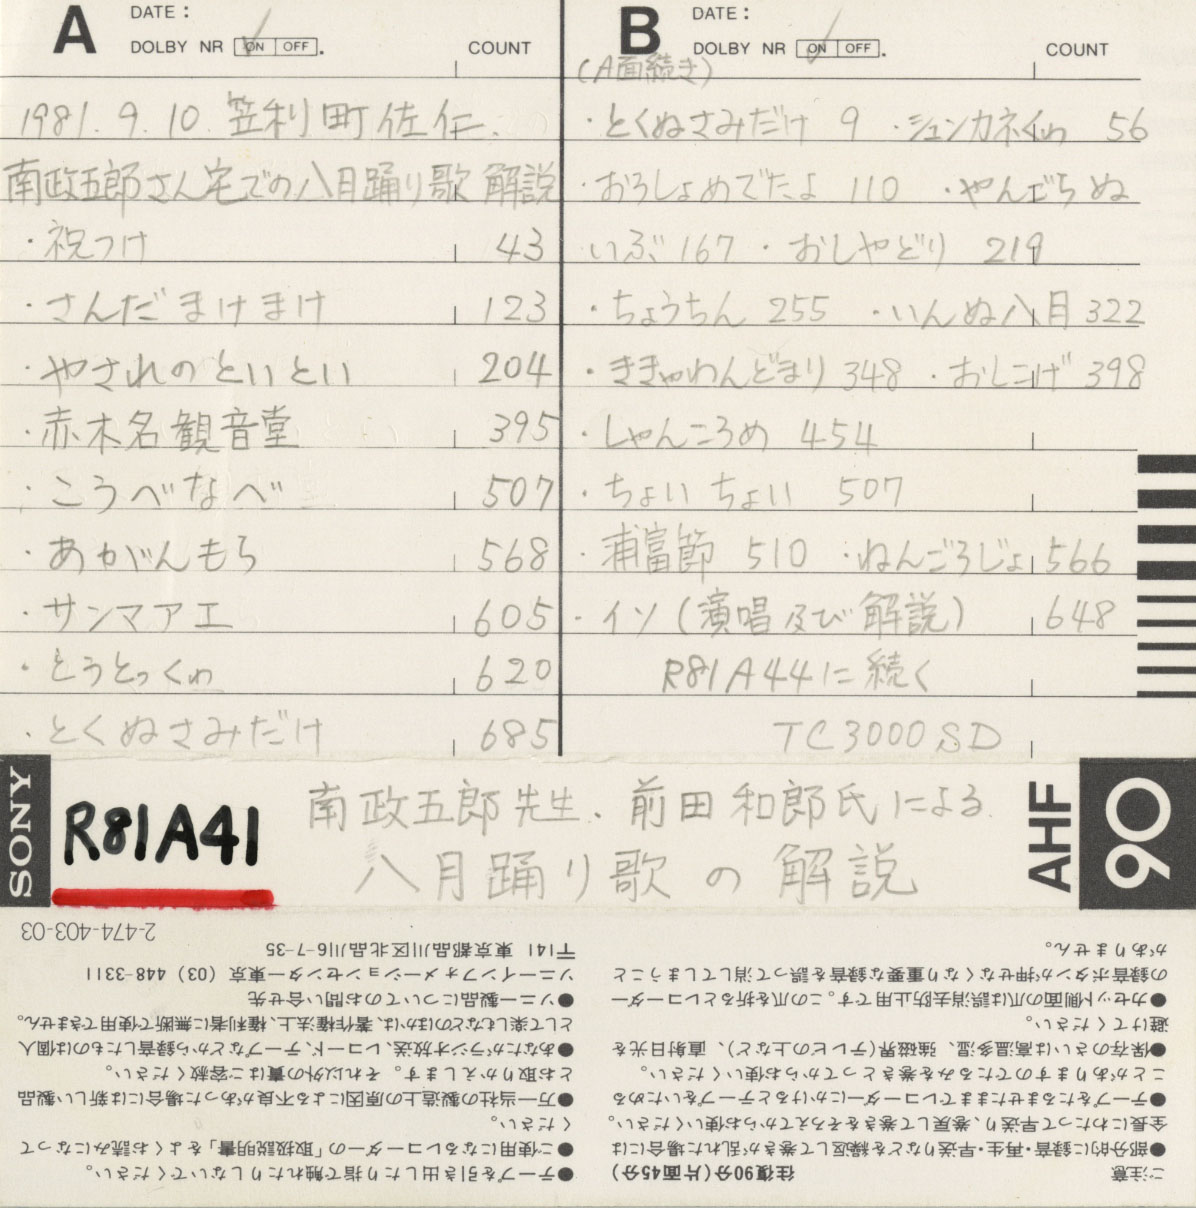 A DATE:
DOLBY NR ON OFF. COUNT
1981. 9. 10 笠利町佐仁.
南政五郎さん宅での八月踊り歌 解説
・祝つけ 43
・さんだまけまけ 123
・やされのといとい 204
・赤木名観音堂 395
・こうべなべ 507
・あがんもら 568
・サンマアエ 605
・とうとっくゎ 620
・とくぬさみだけ 685
B DATE:
DOLBY NR ON OFF. COUNT
(A面続き)
・とくぬさみだけ 9 ・シュンカネくゎ 56
・おろしょめでたよ 110 ・やんごらぬ
いぶ 167 ・おしゃどり 219
・ちょうちん 255 ・いんぬ八月 322
・ききゃわんどまり 348 ・おしこげ 398
・しゃんころめ 454
・ちょいちょい 507
・浦富節 510 ・ねんごろじょ 566
・イソ(演唱及び解説) 648
R81A44に続く
TC3000SD
SONY
R81A41
南政五郎先生、前田和郎氏による
八月踊り歌の解説
AHF
90
ご注意 往復90分(片面45分)
●部分的に録音・再生・早送りなどを繰返して巻きが乱れた場合には
全長にわたって早送り、巻戻して巻きをそろえてからお使いください。
●テープをたるませたままでレコーダーにかけるとテープをいためる
ことがありますのでたるみを巻きとってからお使いください。
●保存のさいは高温多湿、強磁界(テレビの上など)、直射日光を
避けてください。
●カセット側面の爪は誤消去防止用です。この爪を折るとレコーダー
の録音ボタンが押せなくなり重要な録音を誤って消してしまうこと
がありません。
●テープを引き出したり指で触れたりしないでください。
●ご使用になるレコーダーの「取扱説明書」をよくお読みになって
ください。
●万一当社の製造上の原因による不良があった場合には新しい製品
とお取りかえします。それ以外の責はご容赦ください。
●あなたがラジオ放送、レコード、テープなどから録音したものは個人
として楽しむなどのほかは、著作権法上、権利者に無断で使用できません。
●ソニー製品についてのお問い合せ先
ソニーインフォメーションセンター東京 (03) 448-3311
〒141 東京都品川区北品川6-7-35
2-474-403-03